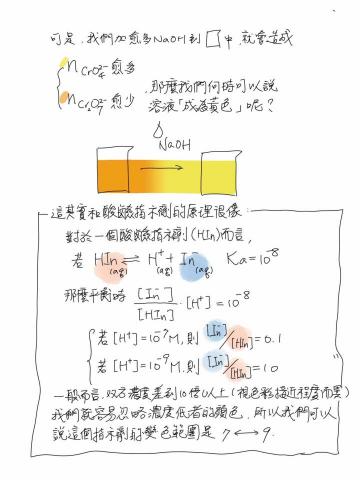 可是,我們加愈多NaOH到□中,就會造成
n CrO₄²⁻愈多
n Cr₂O₇²⁻愈少
那麼我們何時可以說
溶液「成為黃色」呢?
NaOH
這其實和酸鹼指示劑的原理很像:
對於一個酸鹼指示劑(HIn)而言,
若 HIn(aq) ⇌ H⁺(aq) + In⁻(aq) Ka=10⁻⁸
那麼平衡時 [In⁻]/[HIn]·[H⁺]=10⁻⁸
若[H⁺]=10⁻⁷M,則[In⁻]/[HIn]=0.1
若[H⁺]=10⁻⁹M,則[In⁻]/[HIn]=10
一般而言,双方濃度差到10倍以上(視色彩接近程度而異)
我們就容易忽略濃度低者的顏色,所以我們可以
說這個指示劑的變色範圍是 7↔9.